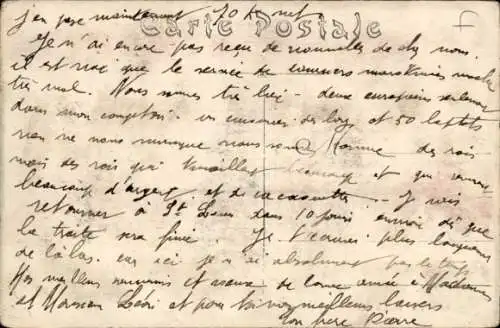 j'en pèse maintenant 70 K net
Carte Postale
F
Je n'ai encore pas reçu de nouvelles de chez nous.
il est vrai que le service de courriers maritimes marche
très mal. Nous sommes très bien - deux européens seulement
dans mon comptoir. et 50
rien ne nous manque nous sommes comme des rois
mais des rois qui travaillent beaucoup et qui
beaucoup d'argent et de cacahuettes -- Je vais
retourner à St Louis dans 10 jours environ dès que
la traite sera finie. Je t'écrirai plus longuement
de là bas. car ici je n'ai absolument pas le temps
Mes meilleurs souvenirs et assure de bonne année à Madame
et Monsieur et pour toi mes meilleurs baisers
ton père Pierre